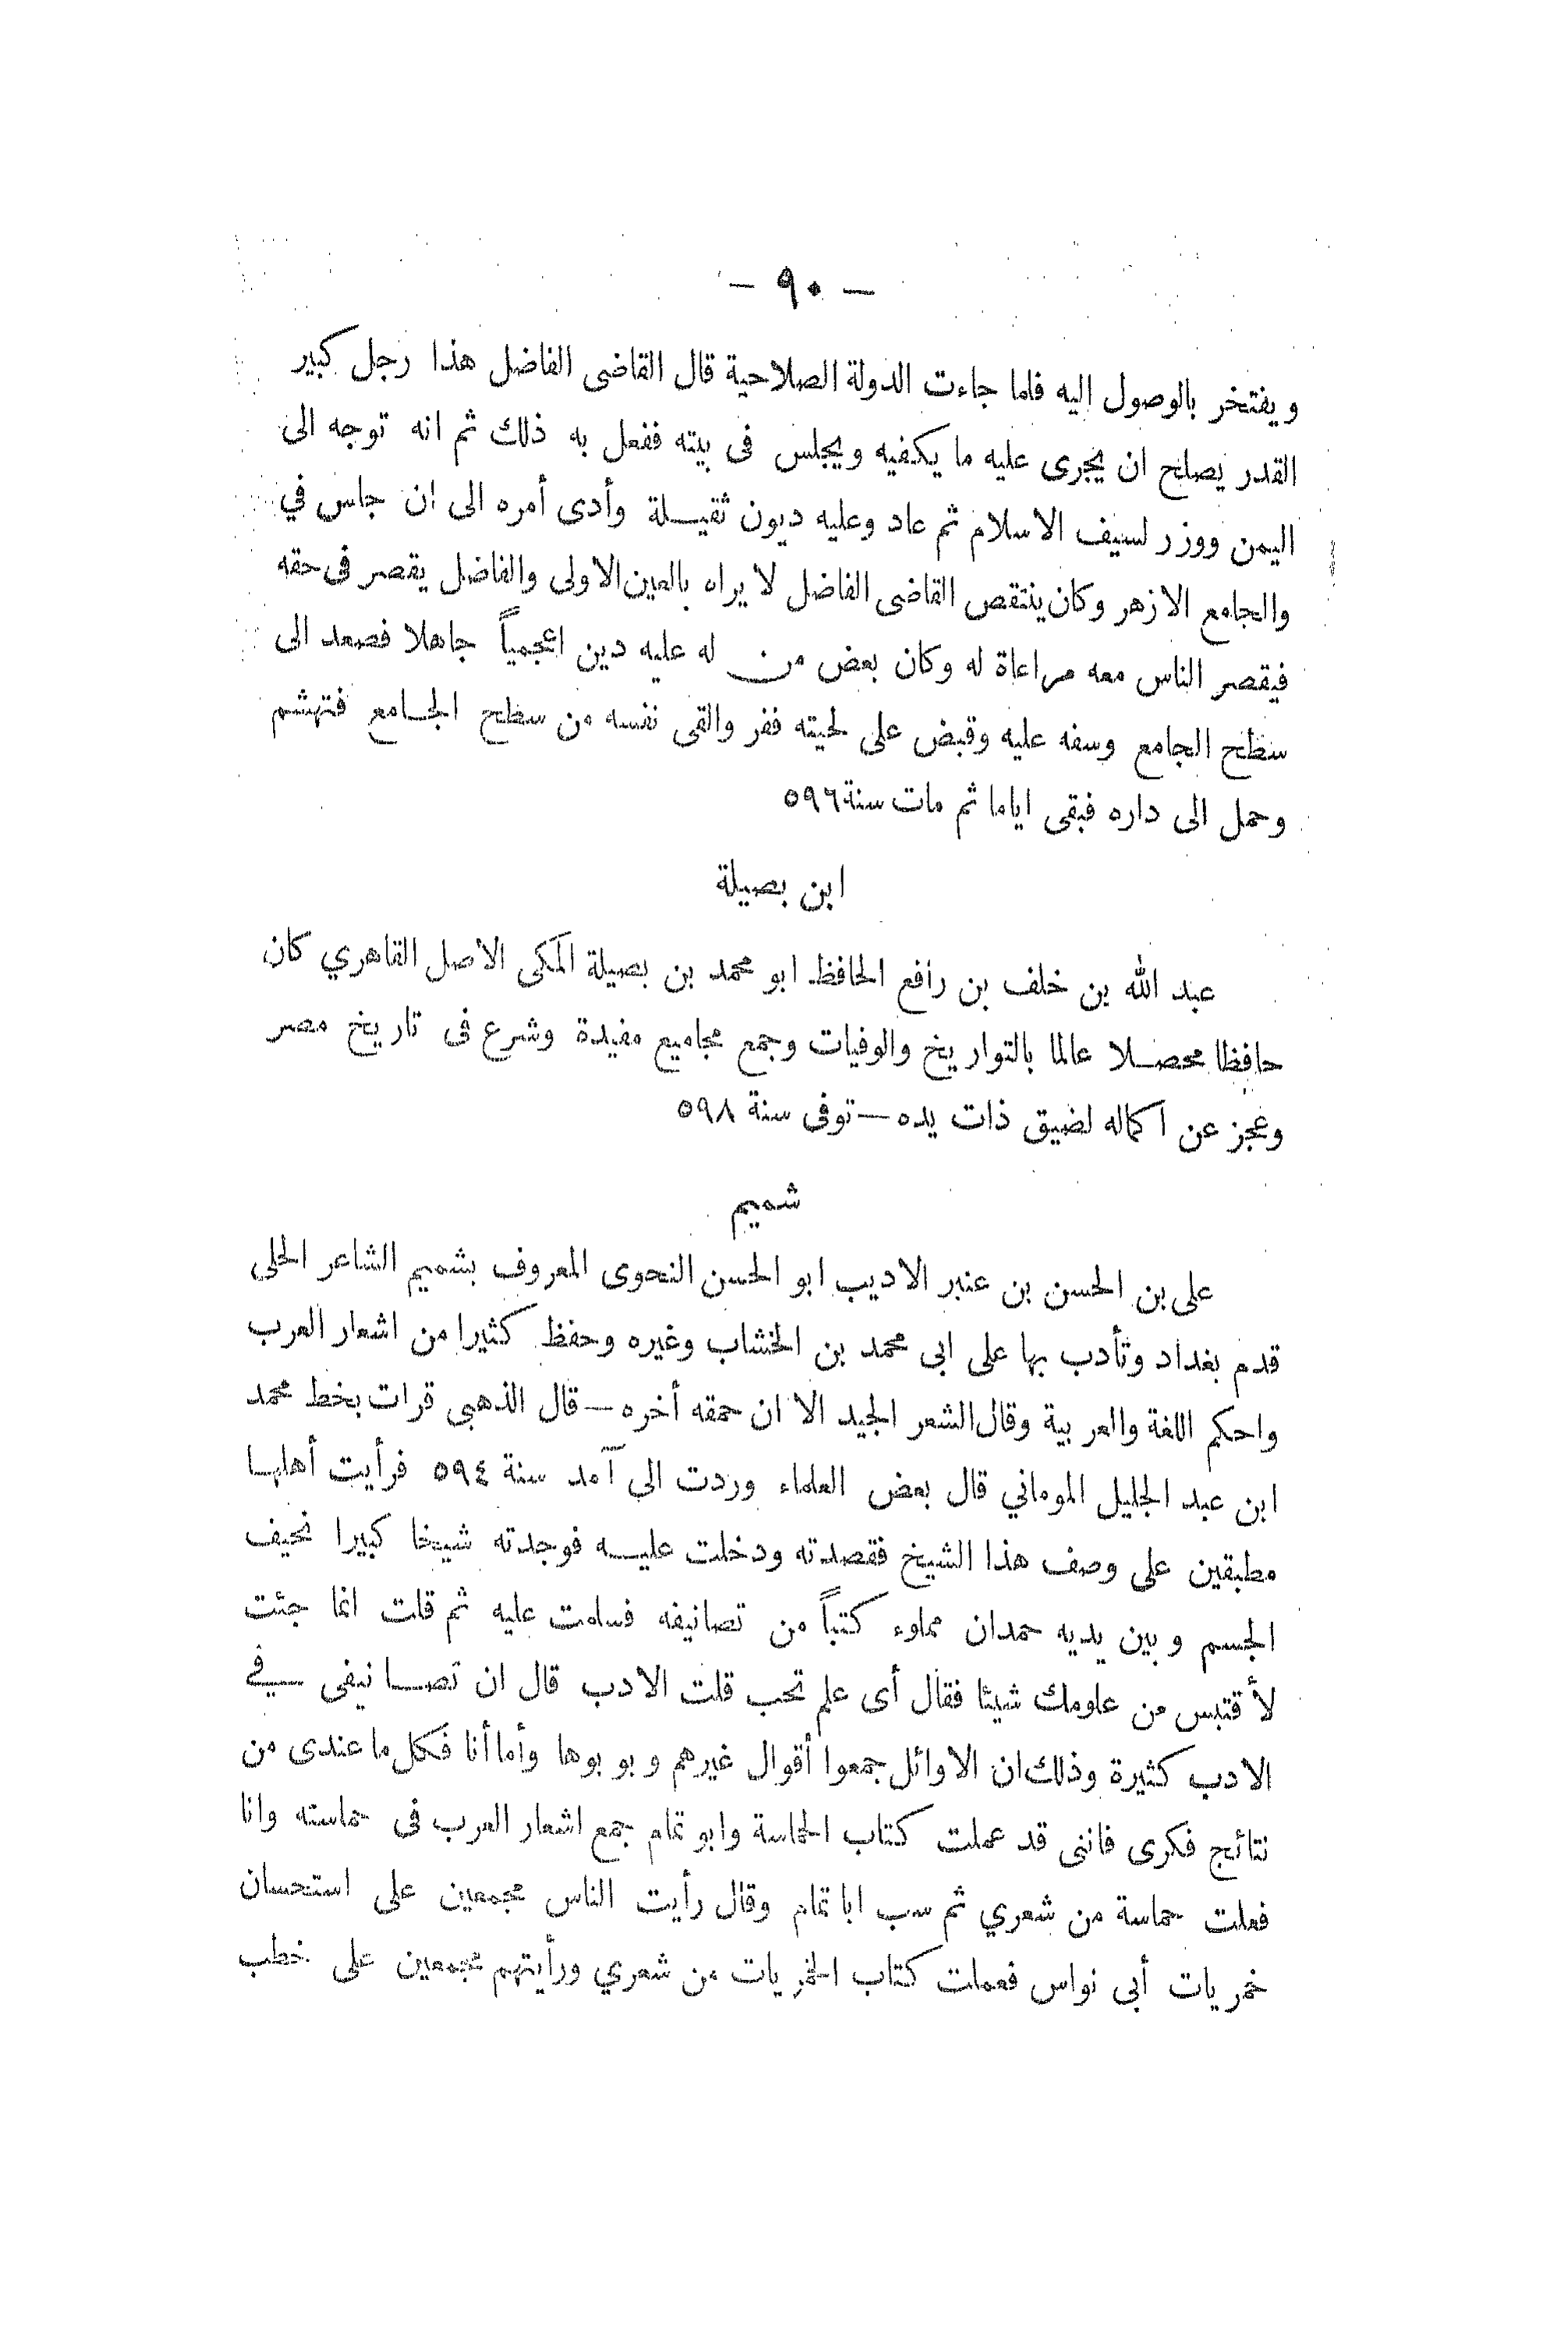 — ٩٠ —
ويفتخر بالوصول اليه فلما جاءت الدولة الصلاحية قال القاضى الفاضل هذا رجل كبير
القدر يصلح ان يجرى عليه ما يكفيه ويجلس فى بيته ففعل به ذلك ثم انه توجه الى
اليمن ووزر لسيف الاسلام ثم عاد وعليه ديون ثقيلة وأدى أمره الى ان جلس في
والجامع الازهر وكان ينتقص القاضى الفاضل لا يراه بالعين الاولى والفاضل يقصر فى حقه
فيقصر الناس معه مراعاة له وكان بعض من له عليه دين اعجمياً جاهلا فصعد الى
سطح الجامع وسفه عليه وقبض على لحيته ففر والقى نفسه من سطح الجامع فتهشم
وحمل الى داره فبقى اياما ثم مات سنة ٥٩٦
ابن بصيلة
عبد الله بن خلف بن رافع الحافظ ابو محمد بن بصيلة المكى الاصل القاهري كان
حافظا محصلا عالما بالتواريخ والوفيات وجمع مجاميع مفيدة وشرع فى تاريخ مصر
وعجز عن اكماله لضيق ذات يده — توفى سنة ٥٩٨
شميم
على بن الحسن بن عنبر الاديب ابو الحسن النحوى المعروف بشميم الشاعر الحلى
قدم بغداد وتأدب بها على ابى محمد بن الخشاب وغيره وحفظ كثيرا من اشعار العرب
واحكم اللغة والعربية وقال الشعر الجيد الا ان حمقه أخره — قال الذهبى قرات بخط محمد
ابن عبد الجليل الموماني قال بعض العلماء وردت الى آمد سنة ٥٩٤ فرأيت أهلها
مطبقين على وصف هذا الشيخ فقصدته ودخلت عليه فوجدته شيخا كبيرا نحيف
الجسم وبين يديه حمدان مملوء كتباً من تصانيفه فسلمت عليه ثم قلت انما جئت
لأقتبس من علومك شيئا فقال أى علم تحب قلت الادب قال ان تصانيفى في
الادب كثيرة وذلك ان الاوائل جمعوا أقوال غيرهم وبوبوها وأما أنا فكل ما عندى من
نتائج فكرى فاننى قد عملت كتاب الحماسة وابو تمام جمع اشعار العرب فى حماسته وانا
فعلت حماسة من شعري ثم سب ابا تمام وقال رأيت الناس مجمعين على استحسان
خمريات أبى نواس فعملت كتاب الخمريات من شعري ورأيتهم مجمعين على خطب